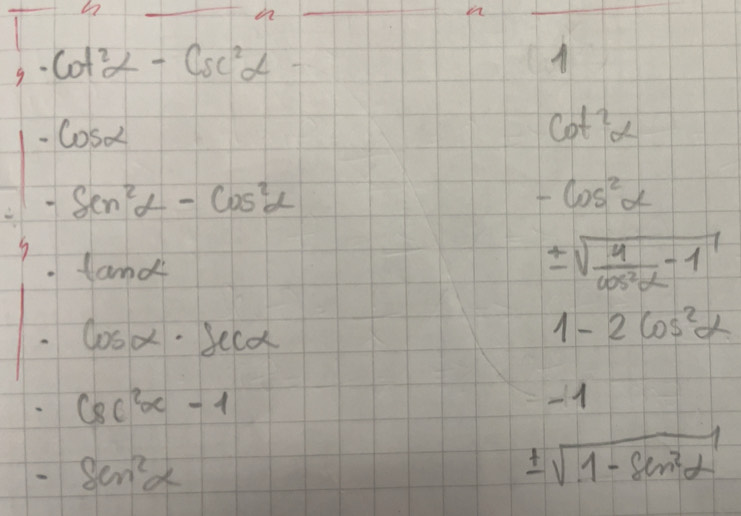 · Cot²α - Csc²α - 1
- Cosα Cot²α
- Sen²α - Cos²α - Cos²α
· tanα ±√(1/cos²α - 1)
· Cosα · Secα 1 - 2 Cos²α
· Csc²α - 1 -1
- Sen²α ±√(1 - Sen²α)